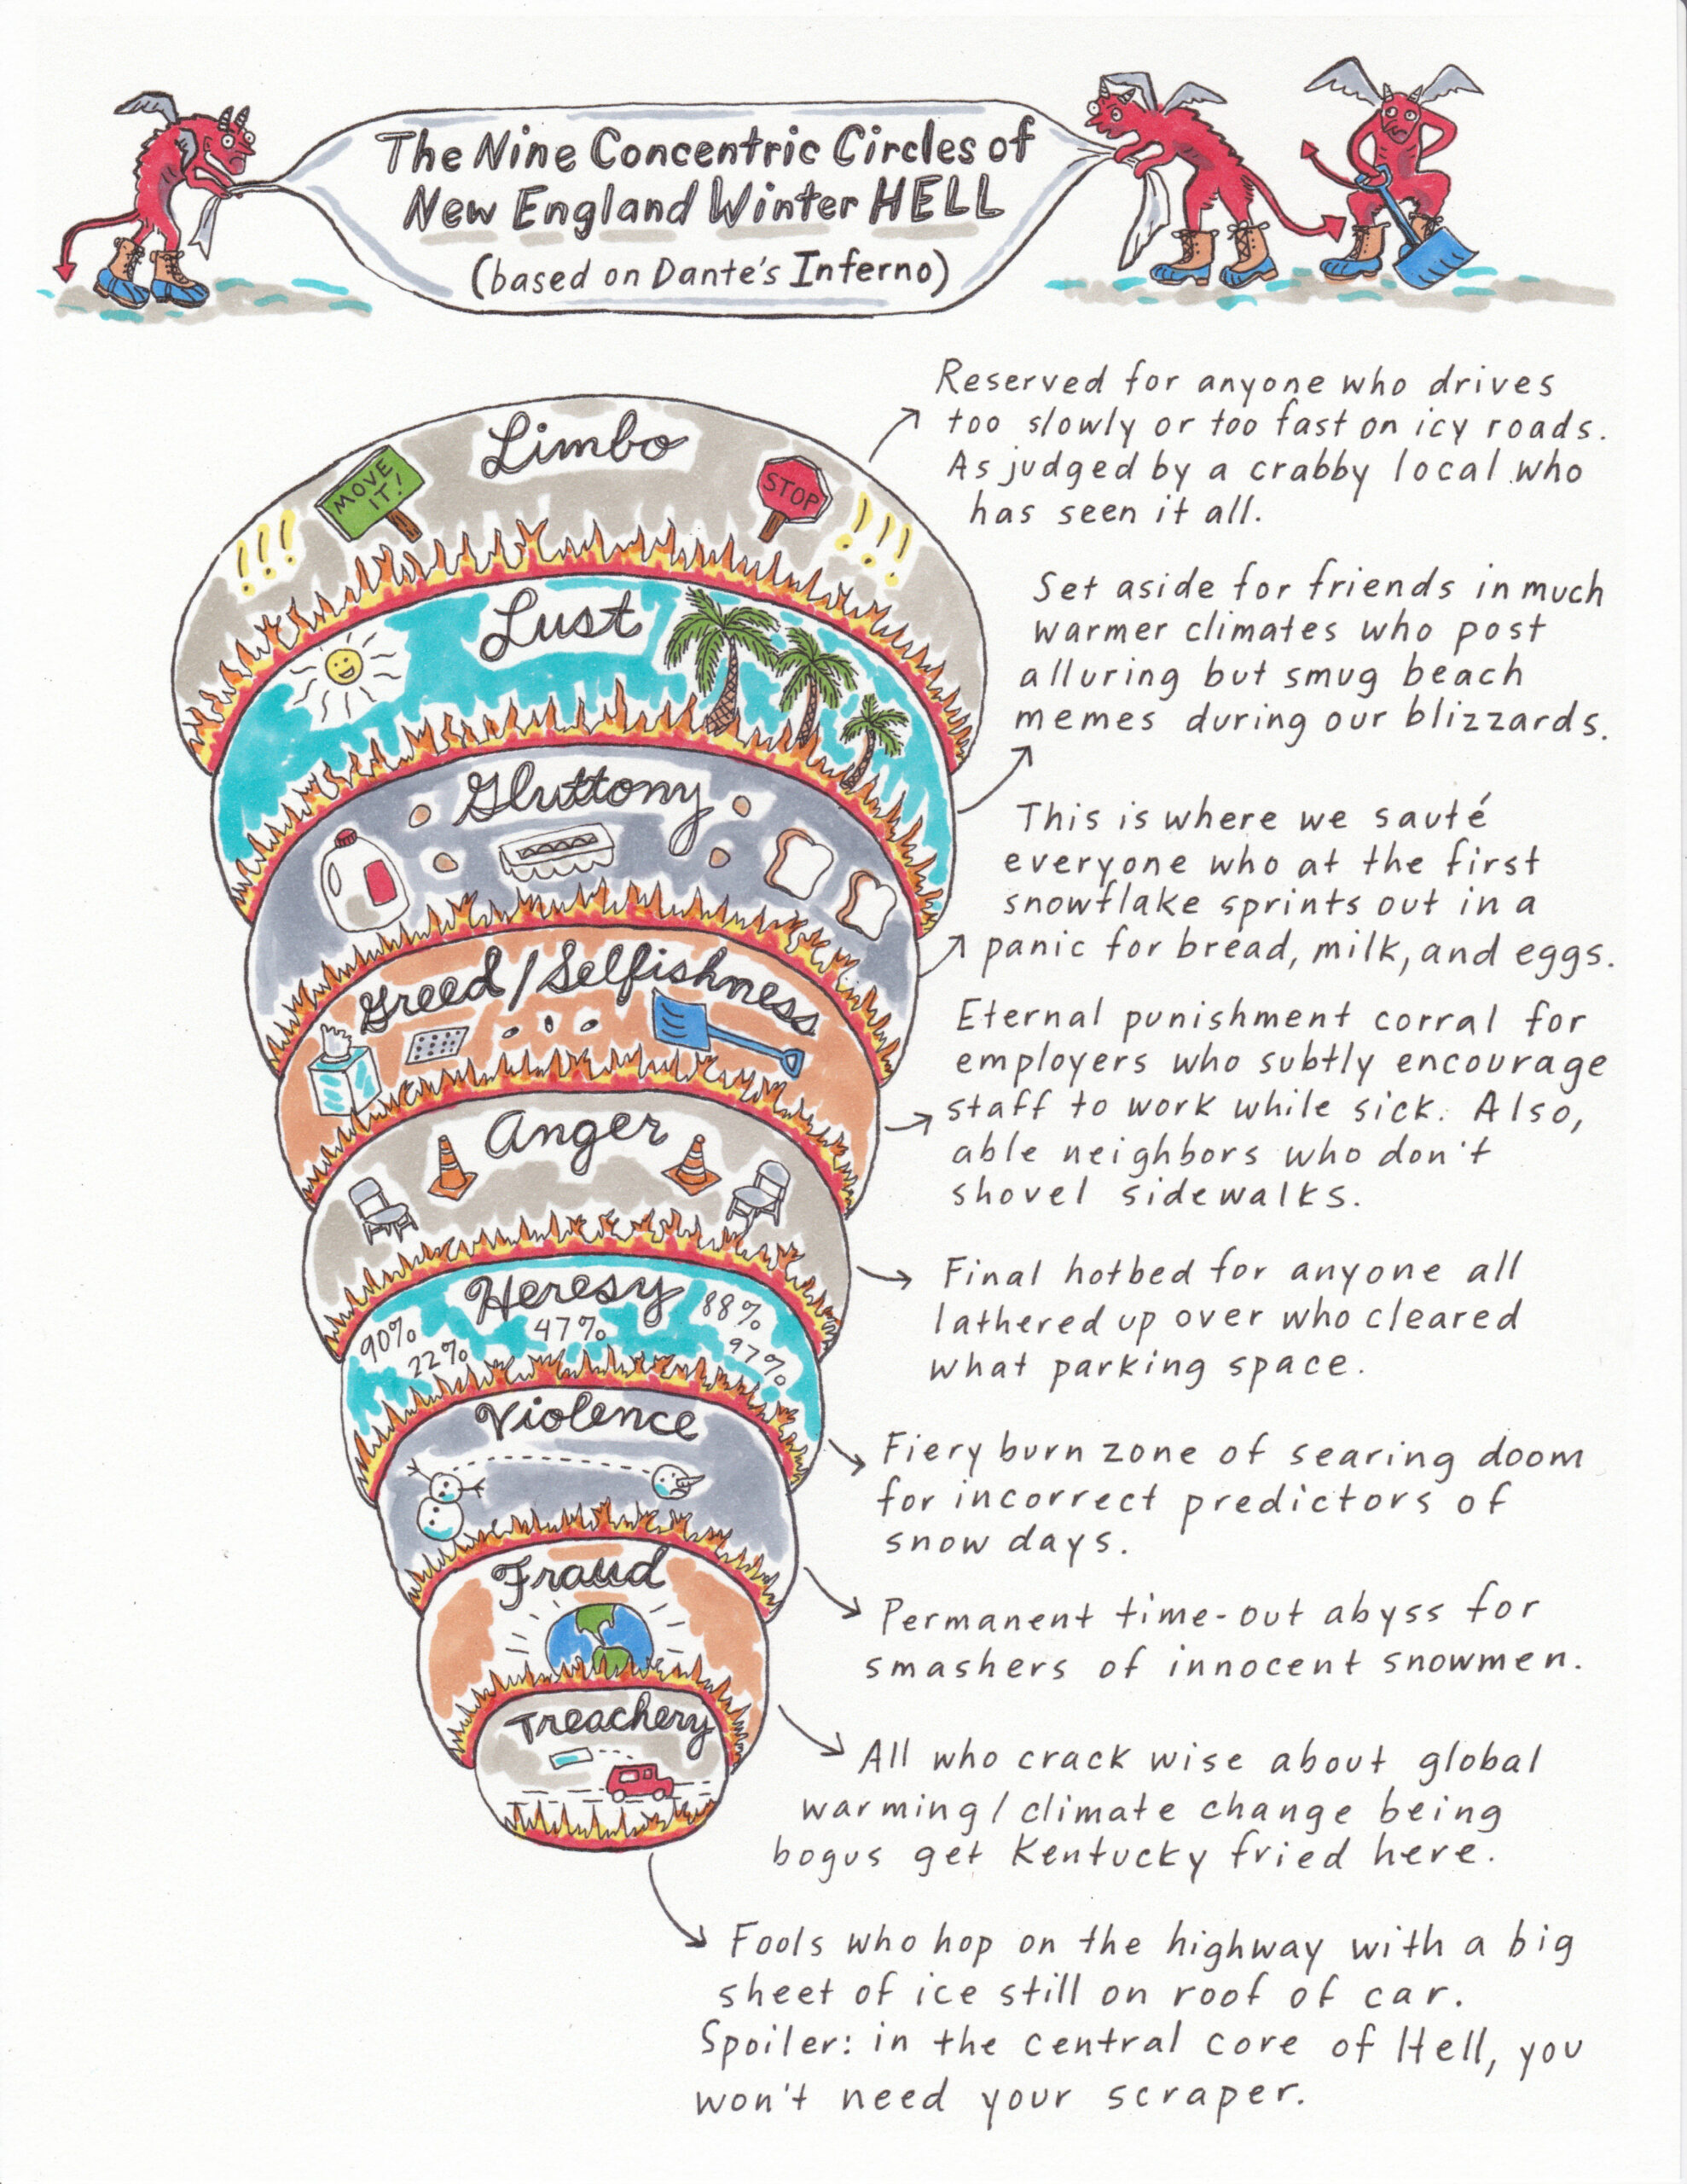 The Nine Concentric Circles of
New England Winter HELL
(based on Dante's Inferno)
Limbo
MOVE
IT!
STOP
!!!
!!!
Reserved for anyone who drives
too slowly or too fast on icy roads.
As judged by a crabby local who
has seen it all.
Lust
Set aside for friends in much
warmer climates who post
alluring but smug beach
memes during our blizzards.
Gluttony
This is where we sauté
everyone who at the first
snowflake sprints out in a
panic for bread, milk, and eggs.
Greed/Selfishness
Eternal punishment corral for
employers who subtly encourage
staff to work while sick. Also,
able neighbors who don't
shovel sidewalks.
Anger
Final hotbed for anyone all
lathered up over who cleared
what parking space.
Heresy
90%
22%
47%
88%
97%
Fiery burn zone of searing doom
for incorrect predictors of
snow days.
Violence
Permanent time-out abyss for
smashers of innocent snowmen.
Fraud
All who crack wise about global
warming/climate change being
bogus get Kentucky fried here.
Treachery
Fools who hop on the highway with a big
sheet of ice still on roof of car.
Spoiler: in the central core of Hell, you
won't need your scraper.